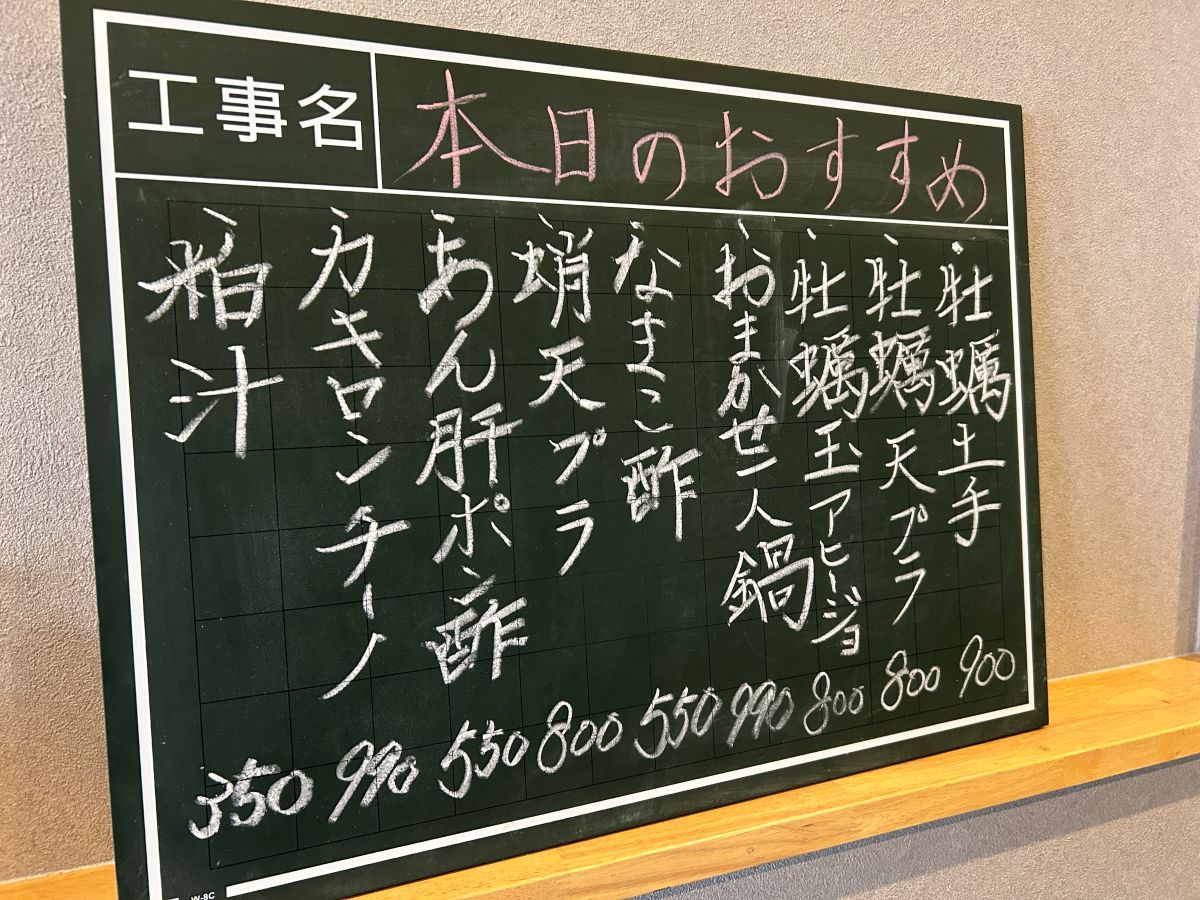 工事名
本日のおすすめ
・牡蠣土手 900
・牡蠣天プラ 800
・牡蠣玉アヒージョ 800
・おまかせ一人鍋 990
・なまこ酢 550
・蛸天プラ 800
・あん肝ポン酢 550
・カキロンチーノ 990
・粕汁 350
W-8C